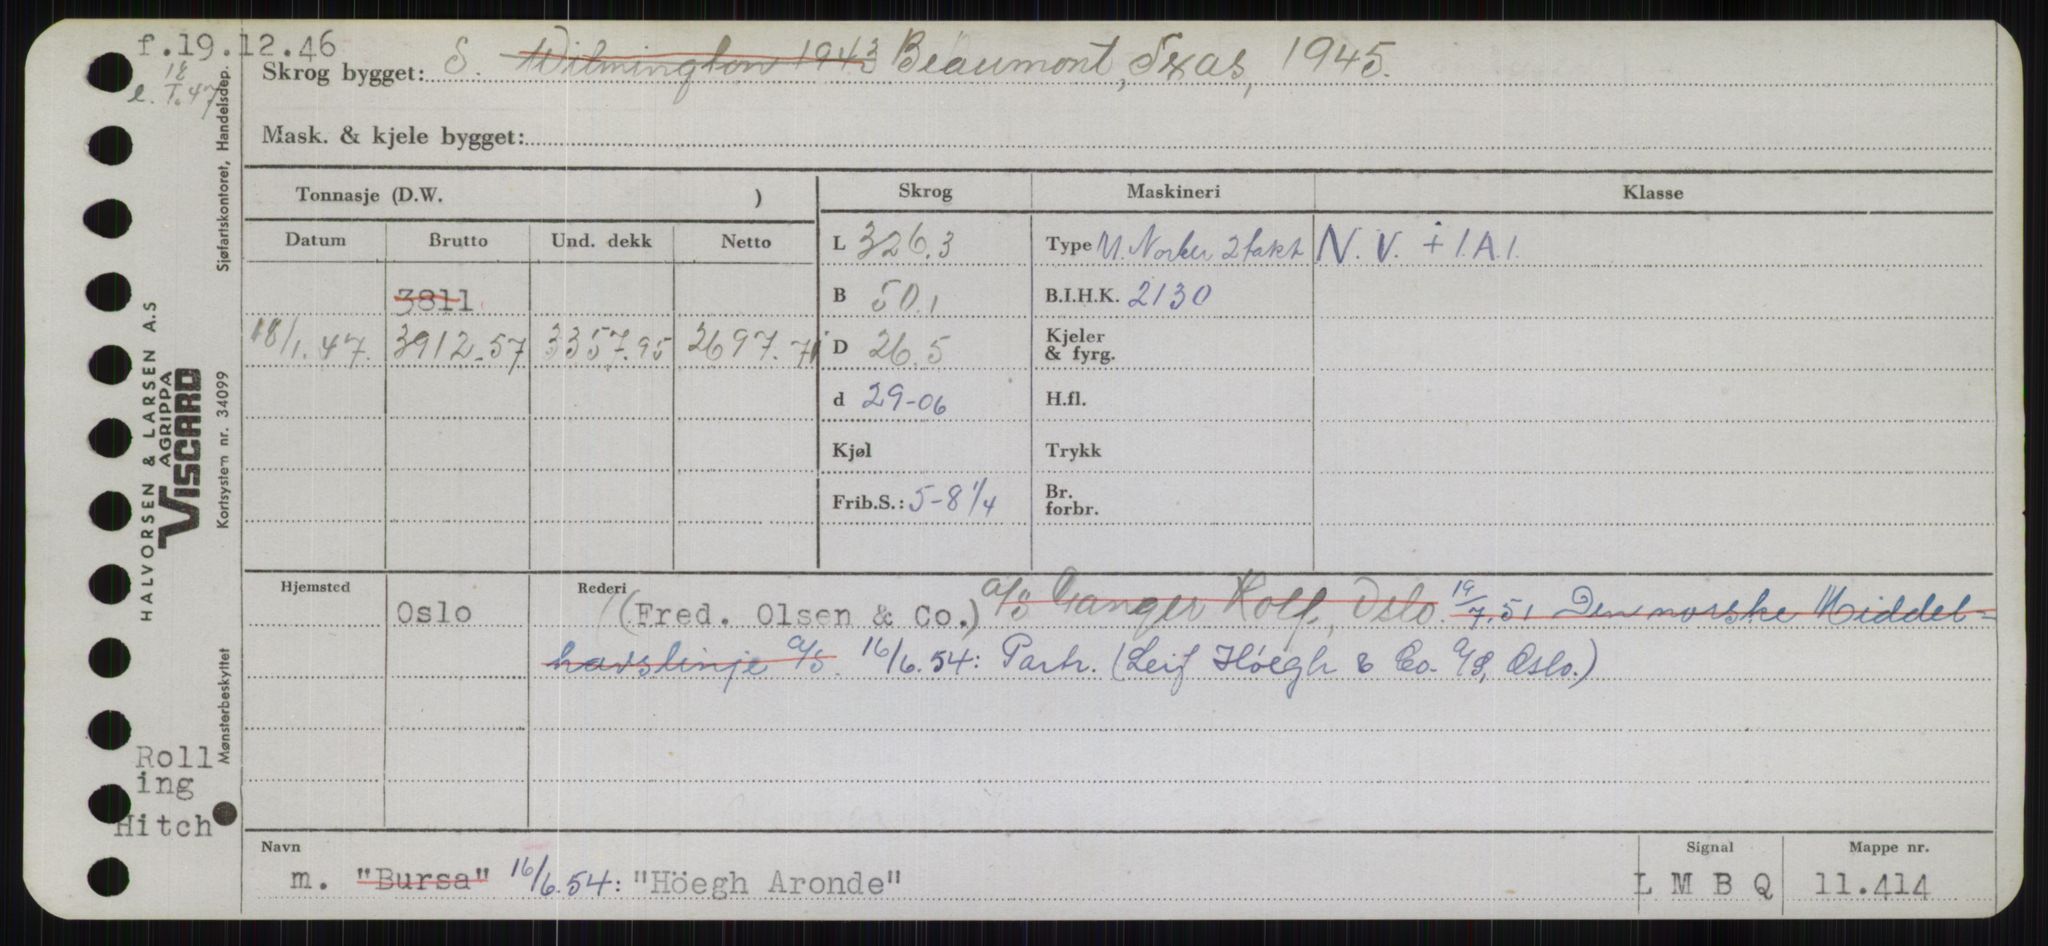 f.19.12.46
18
e. I.47
Skrog bygget: S. Wilmington 1943 Beaumont, Texas, 1945.
Mask. & kjele bygget:
Tonnasje (D.W. )
Skrog
Maskineri
Klasse
Datum Brutto Und. dekk Netto
L 326.3
Type M. Norber 2 takt
N. V. + 1.A.1.
3811
B 50.1
B.I.H.K. 2130
18/1.47. 3912.57 3357.95 2697.71
D 26.5
Kjeler
& fyrg.
d 29-06
H.fl.
Kjøl
Trykk
Frib.S.: 5-8 1/4
Br.
forbr.
Hjemsted
Oslo
Rederi
(Fred. Olsen & Co.) A/S Ganger Rolf, Oslo. 19/7.51 Den norske Middel=
havslinje A/S. 16/6.54: Partr. (Leif Höegh & Co. A/S, Oslo.)
Navn
m. "Bursa" 16/6.54: "Höegh Aronde"
Signal
L M B Q
Mappe nr.
11.414
Sjøfartskontoret, Handelsdep.
HALVORSEN & LARSEN A.S
AGRIPPA
VISCARD
Kortsystem nr. 34099
Mønsterbeskyttet
Roll
ing
Hitch